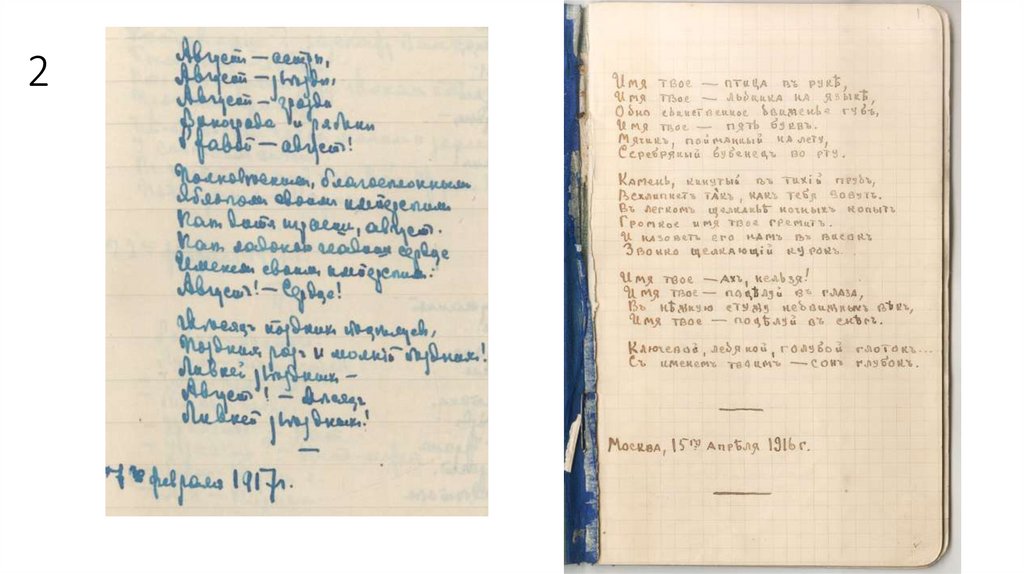 2
Август — астры,
Август — звѣзды,
Август — грозди
Винограда и рябины
Ржавой — август!
Полновѣснымъ, благосклоннымъ
Яблокомъ своимъ имперскимъ
Какъ дитя играешь, август.
Какъ ладонью гладишь сердце
Именемъ своимъ имперскимъ:
Августъ! — Сердце!
Мѣсяцъ позднихъ поцѣлуевъ,
Позднихъ розъ и молній позднихъ!
Ливней звѣздныхъ —
Августъ! — Мѣсяцъ
Ливней звѣздныхъ!
7го февраля 1917г.
Имя твое — птица въ рукѣ,
Имя твое — льдинка на языкѣ,
Одно единственное движенье губъ,
Имя твое — пять буквъ.
Мячикъ, пойманный на лету,
Серебряный бубенецъ во рту.
Камень, кинутый въ тихій прудъ,
Всхлипнетъ так, какъ тебя зовутъ.
Въ легкомъ щелканьѣ ночныхъ копытъ
Громкое имя твое гремитъ.
И назоветъ его намъ въ високъ
Звонко щелкающій курокъ.
Имя твое — ахъ, нельзя!
Имя твое — поцѣлуй въ глаза,
Въ нѣжную стужу недвижныхъ вѣкъ,
Имя твое — поцѣлуй въ снѣгъ.
Ключевой, ледяной, голубой глотокъ...
Съ именемъ твоимъ — сонъ глубокъ.
Москва, 15го апрѣля 1916 г.